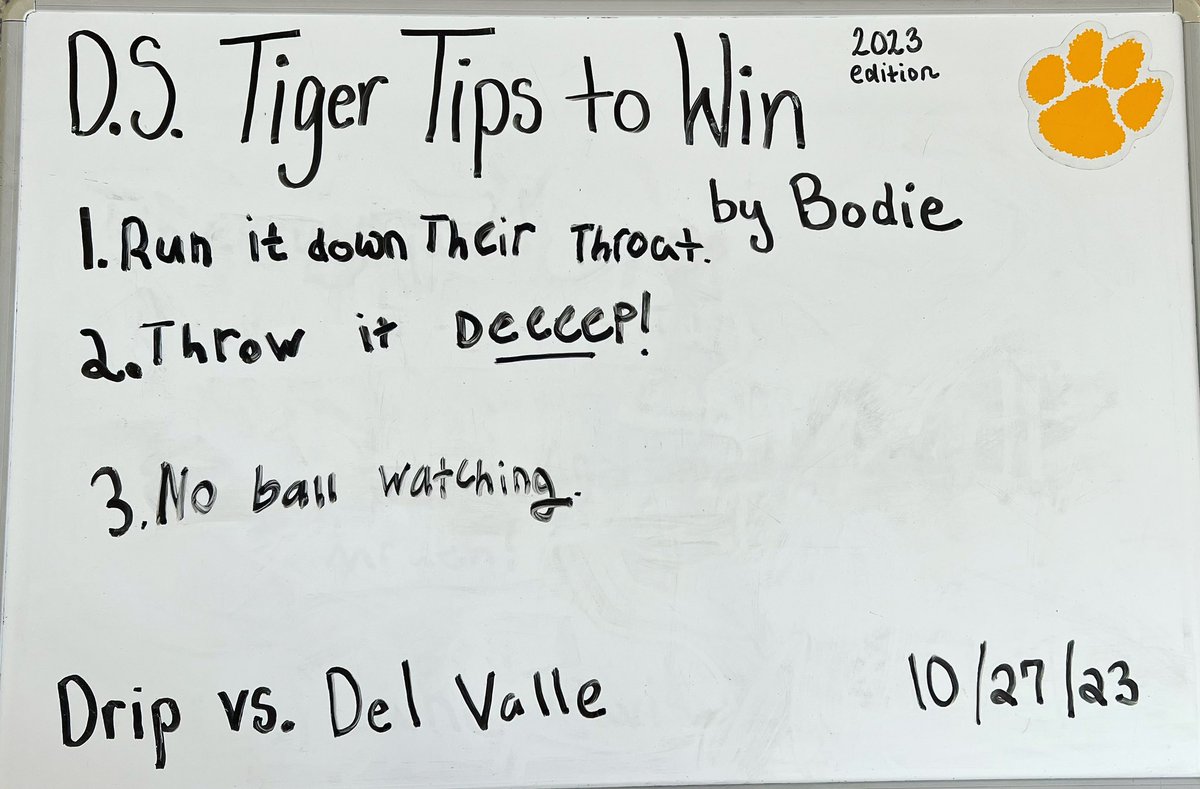 D.S. Tiger Tips to Win
2023
edition
by Bodie
1. Run it down Their Throat.
2. Throw it Deeeeep!
3. No ball watching.
Drip vs. Del Valle
10/27/23